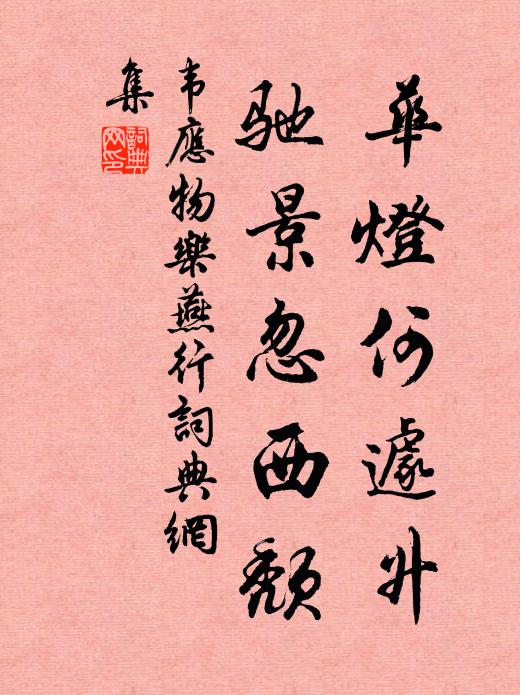 華燈何遽升
馳景忽西頹
韦應物樂燕行詞典網
集
詞典
网印